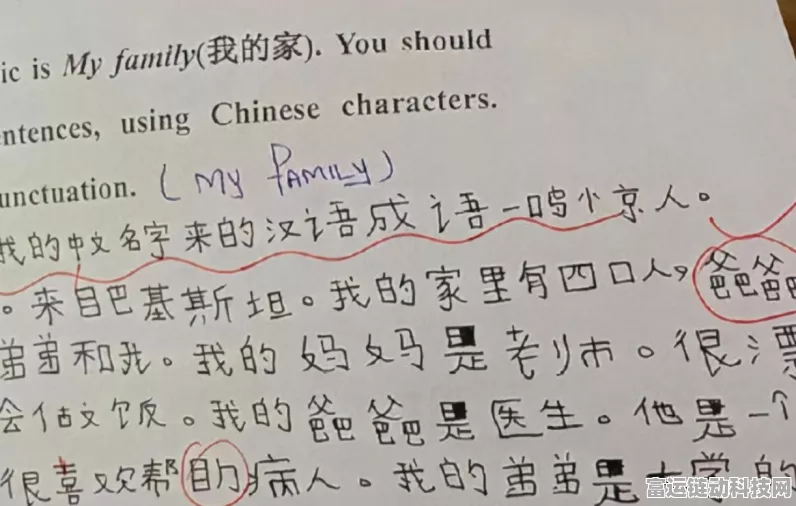 ic is My family(我的家). You should
ntences, using Chinese characters.
unctuation. (My FAMILY)
我的中文名字来的汉语成语一鸣小京人。
。来自巴基斯坦。我的家里有四口人，爸爸
弟弟和我。我的妈妈是老师。很漂
会做饭。我的爸爸是医生。他是一个
很喜欢帮助病人。我的弟弟是大学的
富运链动科技网